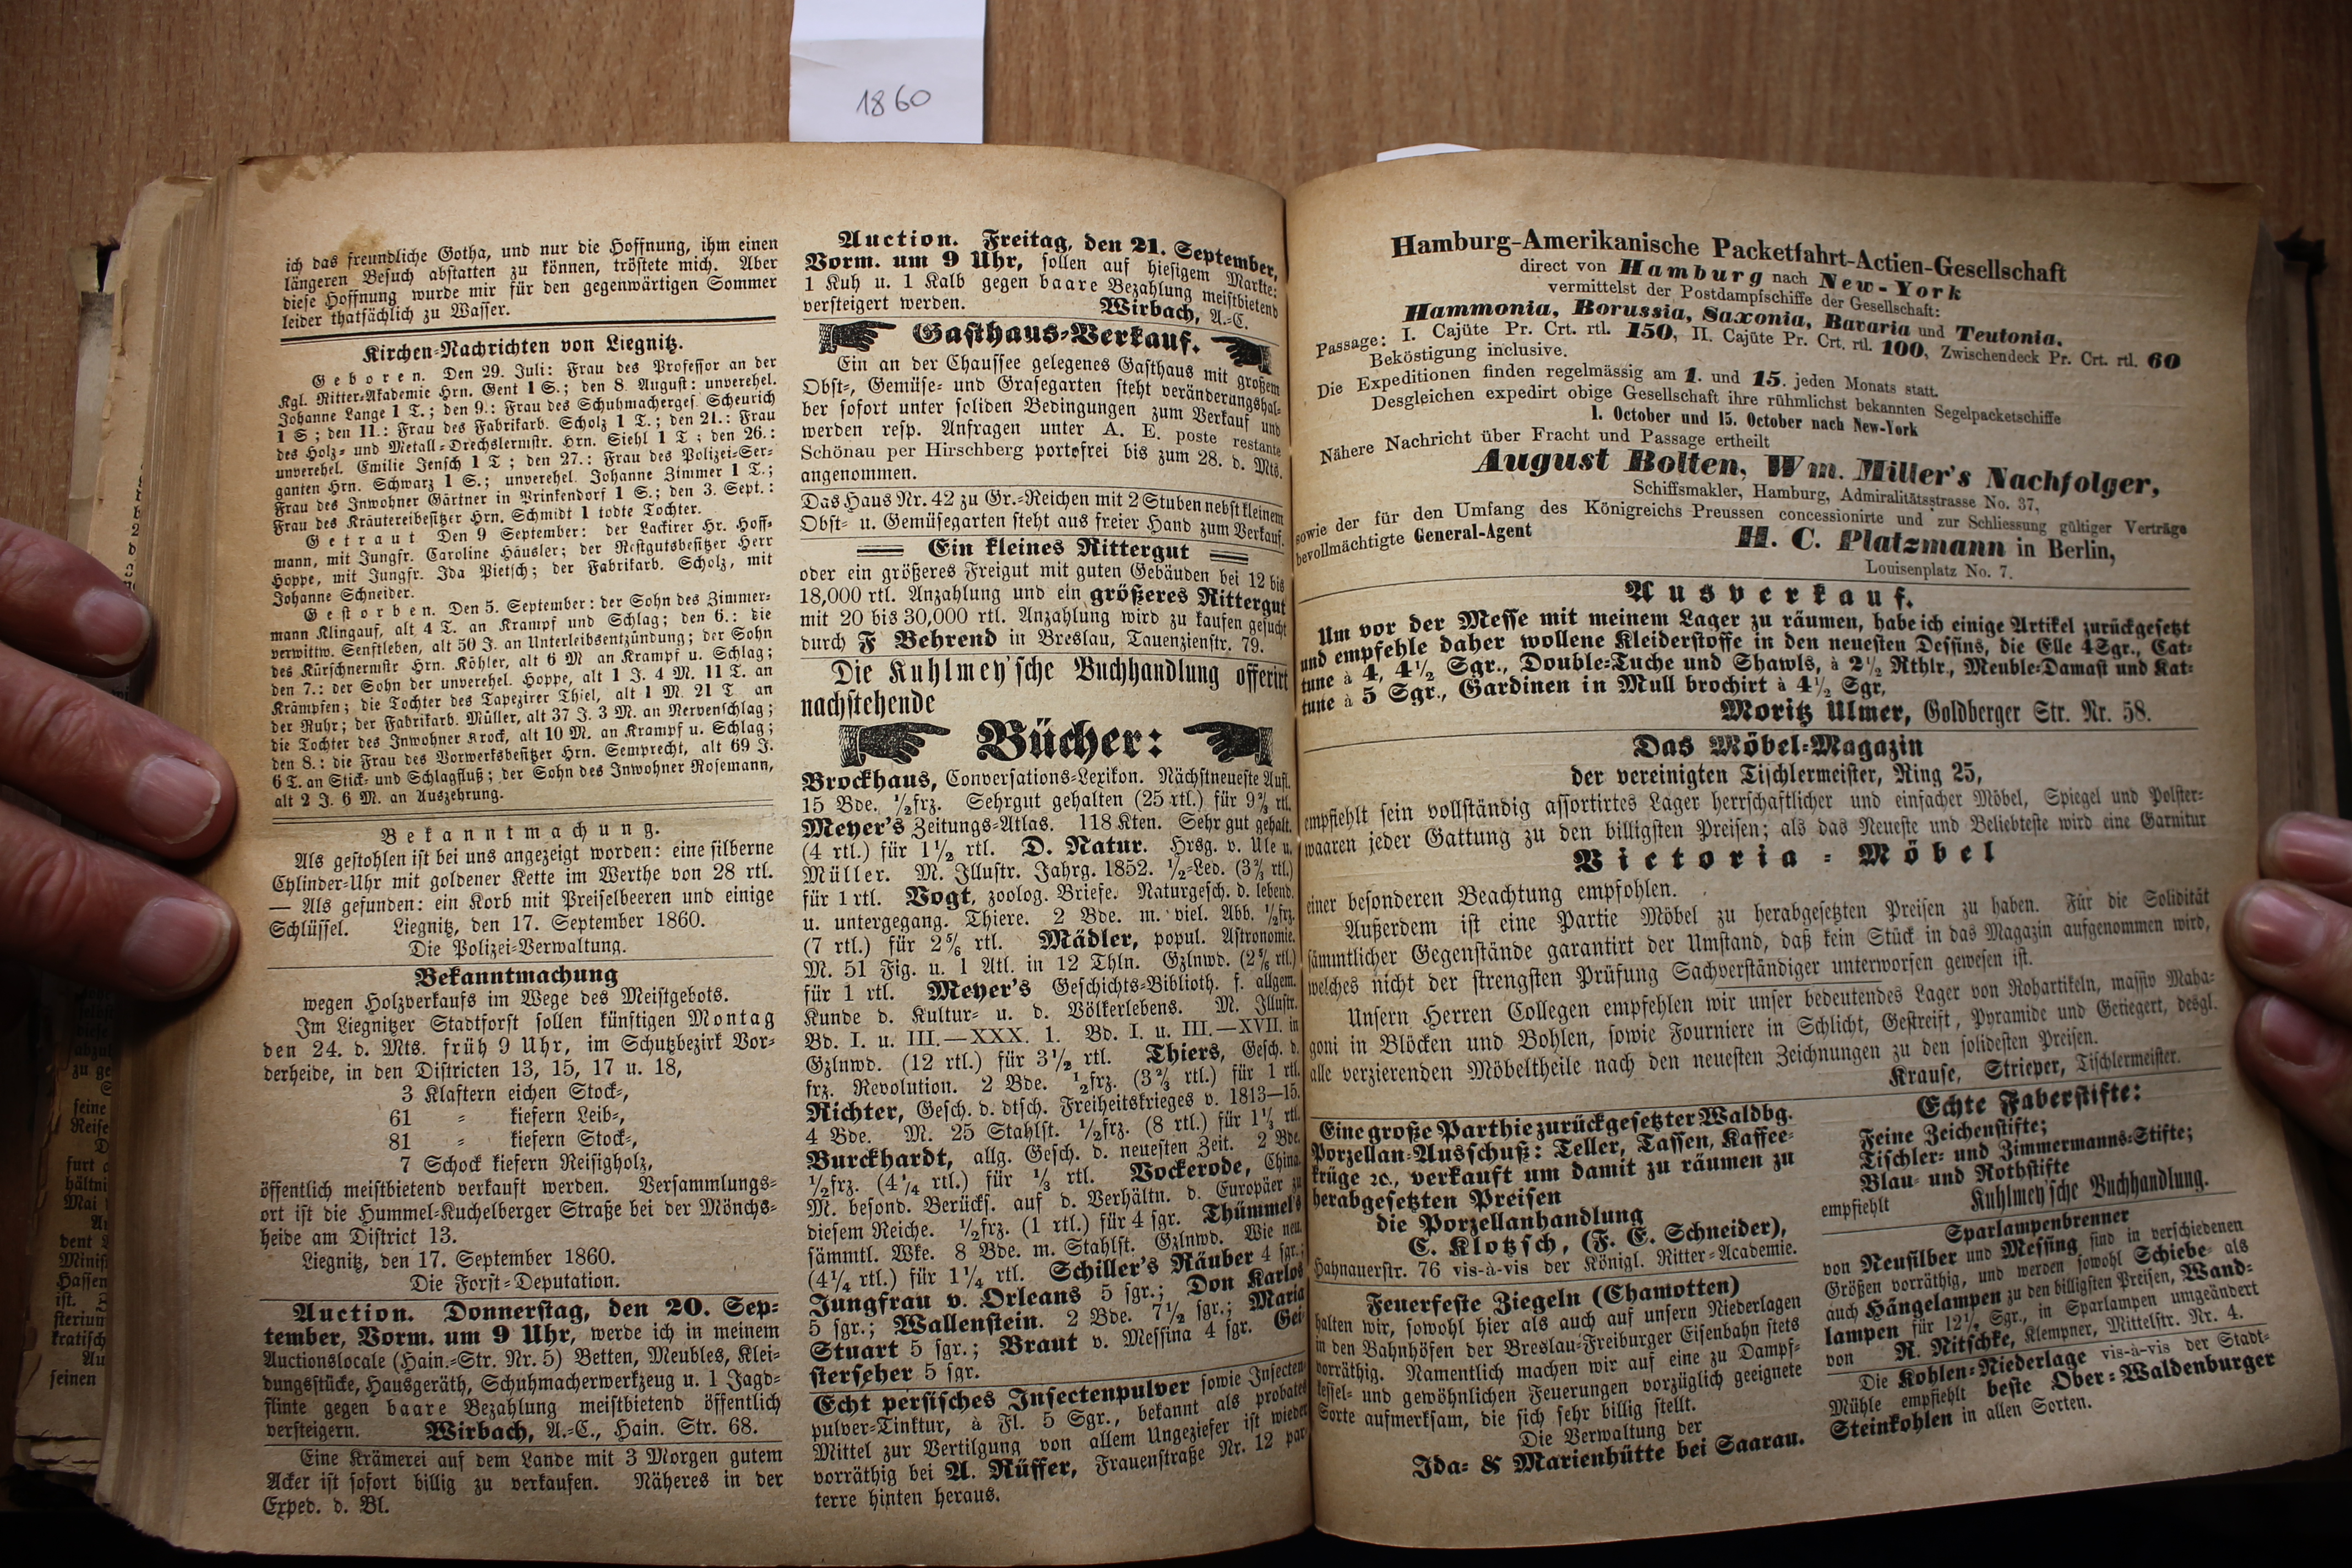 1860
ich das freundliche Gotha, und nur die Hoffnung, ihm einen
längeren Besuch abstatten zu können, tröstete mich. Aber
diese Hoffnung wurde mir für den gegenwärtigen Sommer
leider thatsächlich zu Wasser.
Kirchen-Nachrichten von Liegnitz.
Geboren. Den 29. Juli: Frau des Professor an der
Kgl. Ritter-Akademie Hrn. Gent 1 S.; den 8. August: unverehel.
Johanne Lange 1 T.; den 9.: Frau des Schuhmacherges. Scheurich
1 S; den 11.: Frau des Fabrikarb. Scholz 1 T.; den 21.: Frau
des Holz- und Metall-Drechslermstr. Hrn. Siehl 1 T; den 26.:
unverehel. Emilie Jensch 1 T; den 27.: Frau des Polizei-Ser-
ganten Hrn. Schwarz 1 S.; unverehel. Johanne Zimmer 1 T.;
Frau des Inwohner Gärtner in Prinkendorf 1 S.; den 3. Sept.:
Frau des Kräutereibesitzer Hrn. Schmidt 1 todte Tochter.
Getraut Den 9 September: der Lackirer Hr. Hoff-
mann, mit Jungfr. Caroline Häusler; der Restgutsbesitzer Herr
Hoppe, mit Jungfr. Ida Pietsch; der Fabrikarb. Scholz, mit
Johanne Schneider.
Gestorben. Den 5. September: der Sohn des Zimmer-
mann Klingauf, alt 4 T. an Krampf und Schlag; den 6.: die
verwittw. Senftleben, alt 50 J. an Unterleibsentzündung; der Sohn
des Kürschnermstr Hrn. Köhler, alt 6 M an Krampf u. Schlag;
den 7.: der Sohn der unverehel. Hoppe, alt 1 J. 4 M. 11 T. an
Krämpfen; die Tochter des Tapezirer Thiel, alt 1 M. 21 T an
der Ruhr; der Fabrikarb. Müller, alt 37 J. 3 M. an Nervenschlag;
die Tochter des Inwohner Krock, alt 10 M. an Krampf u. Schlag;
den 8.: die Frau des Vorwerksbesitzer Hrn. Semprecht, alt 69 J.
6 T. an Stick- und Schlagfluß; der Sohn des Inwohner Rosemann,
alt 2 J. 6 M. an Auszehrung.
Bekanntmachung.
Als gestohlen ist bei uns angezeigt worden: eine silberne
Cylinder-Uhr mit goldener Kette im Werthe von 28 rtl.
— Als gefunden: ein Korb mit Preiselbeeren und einige
Schlüssel. Liegnitz, den 17. September 1860.
Die Polizei-Verwaltung.
Bekanntmachung
wegen Holzverkaufs im Wege des Meistgebots.
Im Liegnitzer Stadtforst sollen künftigen Montag
den 24. d. Mts. früh 9 Uhr, im Schutzbezirk Vor-
derheide, in den Districten 13, 15, 17 u. 18,
3 Klaftern eichen Stock-,
61 = kiefern Leib-,
81 = kiefern Stock-,
7 Schock kiefern Reisigholz,
öffentlich meistbietend verkauft werden. Versammlungs-
ort ist die Hummel-Kuchelberger Straße bei der Mönchs-
heide am District 13.
Liegnitz, den 17. September 1860.
Die Forst-Deputation.
Auction. Donnerstag, den 20. Sep-
tember, Vorm. um 9 Uhr, werde ich in meinem
Auctionslocale (Hain.-Str. Nr. 5) Betten, Meubles, Klei-
dungsstücke, Hausgeräth, Schuhmacherwerkzeug u. 1 Jagd-
flinte gegen baare Bezahlung meistbietend öffentlich
versteigern. Wirbach, A.-C., Hain. Str. 68.
Eine Krämerei auf dem Lande mit 3 Morgen gutem
Acker ist sofort billig zu verkaufen. Näheres in der
Exped. d. Bl.
Auction. Freitag, den 21. September,
Vorm. um 9 Uhr, sollen auf hiesigem Markte:
1 Kuh u. 1 Kalb gegen baare Bezahlung meistbietend
versteigert werden. Wirbach, A.-C.
Gasthaus-Verkauf.
Ein an der Chaussee gelegenes Gasthaus mit großem
Obst-, Gemüse- und Grasegarten steht veränderungshal-
ber sofort unter soliden Bedingungen zum Verkauf und
werden resp. Anfragen unter A. E. poste restante
Schönau per Hirschberg portofrei bis zum 28. d. Mts.
angenommen.
Das Haus Nr. 42 zu Gr.-Reichen mit 2 Stuben nebst kleinem
Obst- u. Gemüsegarten steht aus freier Hand zum Verkauf.
Ein kleines Rittergut
oder ein größeres Freigut mit guten Gebäuden bei 12 bis
18,000 rtl. Anzahlung und ein größeres Rittergut
mit 20 bis 30,000 rtl. Anzahlung wird zu kaufen gesucht
durch F Behrend in Breslau, Tauenzienstr. 79.
Die Kuhlmey'sche Buchhandlung offerirt
nachstehende
Bücher:
Brockhaus, Conversations-Lexikon. Nächstneueste Aufl.
15 Bde. ½frz. Sehrgut gehalten (25 rtl.) für 9⅔ rtl.
Meyer's Zeitungs-Atlas. 118 Kten. Sehr gut gehalt.
(4 rtl.) für 1½ rtl. D. Natur. Hrsg. v. Ule u.
Müller. M. Illustr. Jahrg. 1852. ½-Led. (3⅔ rtl.)
für 1 rtl. Vogt, zoolog. Briefe. Naturgesch. d. lebend.
u. untergegang. Thiere. 2 Bde. m. viel. Abb. ½frz.
(7 rtl.) für 2⅚ rtl. Mädler, popul. Astronomie.
M. 51 Fig. u. 1 Atl. in 12 Thln. Gzlnwd. (2⅚ rtl.)
für 1 rtl. Meyer's Geschichts-Biblioth. f. allgem.
Kunde d. Kultur- u. d. Völkerlebens. M. Illustr.
Bd. I. u. III.—XXX. 1. Bd. I. u. III.—XVII. in
Gzlnwd. (12 rtl.) für 3½ rtl. Thiers, Gesch. d.
frz. Revolution. 2 Bde. ½frz. (3⅔ rtl.) für 1 rtl.
Richter, Gesch. d. dtsch. Freiheitskrieges v. 1813—15.
4 Bde. M. 25 Stahlst. ½frz. (8 rtl.) für 1⅓ rtl.
Burckhardt, allg. Gesch. d. neuesten Zeit. 2 Bde.
½frz. (4¼ rtl.) für ⅓ rtl. Vockerode, China.
M. besond. Berücks. auf d. Verhältn. d. Europäer zu
diesem Reiche. ½frz. (1 rtl.) für 4 sgr. Thümmel's
sämmtl. Wke. 8 Bde. m. Stahlst. Gzlnwd. Wie neu.
(4¼ rtl.) für 1¼ rtl. Schiller's Räuber 4 sgr.;
Jungfrau v. Orleans 5 sgr.; Don Karlos
5 sgr.; Wallenstein. 2 Bde. 7½ sgr.; Maria
Stuart 5 sgr.; Braut v. Messina 4 sgr. Gei-
sterseher 5 sgr.
Echt persisches Insectenpulver sowie Insecten-
pulver-Tinktur, à Fl. 5 Sgr., bekannt als probates
Mittel zur Vertilgung von allem Ungeziefer ist wieder
vorräthig bei A. Rüffer, Frauenstraße Nr. 12 par
terre hinten heraus.
Hamburg-Amerikanische Packetfahrt-Actien-Gesellschaft
direct von Hamburg nach New-York
vermittelst der Postdampfschiffe der Gesellschaft:
Hammonia, Borussia, Saxonia, Bavaria und Teutonia.
Passage: I. Cajüte Pr. Crt. rtl. 150, II. Cajüte Pr. Crt. rtl. 100, Zwischendeck Pr. Crt. rtl. 60
Beköstigung inclusive.
Die Expeditionen finden regelmässig am 1. und 15. jeden Monats statt.
Desgleichen expedirt obige Gesellschaft ihre rühmlichst bekannten Segelpacketschiffe
1. October und 15. October nach New-York
Nähere Nachricht über Fracht und Passage ertheilt
August Bolten, Wm. Miller's Nachfolger,
Schiffsmakler, Hamburg, Admiralitätsstrasse No. 37,
sowie der für den Umfang des Königreichs Preussen concessionirte und zur Schliessung gültiger Verträge
bevollmächtigte General-Agent
H. C. Platzmann in Berlin,
Louisenplatz No. 7.
Ausverkauf.
Um vor der Messe mit meinem Lager zu räumen, habe ich einige Artikel zurückgesetzt
und empfehle daher wollene Kleiderstoffe in den neuesten Dessins, die Elle 4 Sgr., Cat-
tune à 4, 4½ Sgr., Double-Tuche und Shawls, à 2½ Rthlr., Meuble-Damast und Kat-
tune à 5 Sgr., Gardinen in Mull brochirt à 4½ Sgr,
Moritz Ulmer, Goldberger Str. Nr. 58.
Das Möbel-Magazin
der vereinigten Tischlermeister, Ring 25,
empfiehlt sein vollständig assortirtes Lager herrschaftlicher und einfacher Möbel, Spiegel und Polster-
waaren jeder Gattung zu den billigsten Preisen; als das Neueste und Beliebteste wird eine Garnitur
Victoria-Möbel
einer besonderen Beachtung empfohlen.
Außerdem ist eine Partie Möbel zu herabgesetzten Preisen zu haben. Für die Solidität
sämmtlicher Gegenstände garantirt der Umstand, daß kein Stück in das Magazin aufgenommen wird,
welches nicht der strengsten Prüfung Sachverständiger unterworfen gewesen ist.
Unsern Herren Collegen empfehlen wir unser bedeutendes Lager von Rohartikeln, massiv Maha-
goni in Blöcken und Bohlen, sowie Fourniere in Schlicht, Gestreift, Pyramide und Getiegert, desgl.
alle verzierenden Möbeltheile nach den neuesten Zeichnungen zu den solidesten Preisen.
Krause, Strieper, Tischlermeister.
Eine große Parthie zurückgesetzter Waldbg.
Porzellan-Ausschuß: Teller, Tassen, Kaffee-
krüge ꝛc., verkauft um damit zu räumen zu
herabgesetzten Preisen
die Porzellanhandlung
C. Klotzsch, (F. E. Schneider),
Hahnauerstr. 76 vis-à-vis der Königl. Ritter-Academie.
Feuerfeste Ziegeln (Chamotten)
halten wir, sowohl hier als auch auf unsern Niederlagen
in den Bahnhöfen der Breslau-Freiburger Eisenbahn stets
vorräthig. Namentlich machen wir auf eine zu Dampf-
kessel- und gewöhnlichen Feuerungen vorzüglich geeignete
Sorte aufmerksam, die sich sehr billig stellt.
Die Verwaltung der
Ida- & Marienhütte bei Saarau.
Echte Faberstifte:
Feine Zeichenstifte;
Tischler- und Zimmermanns-Stifte;
Blau- und Rothstifte
empfiehlt Kuhlmey'sche Buchhandlung.
Sparlampenbrenner
von Neusilber und Messing sind in verschiedenen
Größen vorräthig, und werden sowohl Schiebe- als
auch Hängelampen zu den billigsten Preisen, Wand-
lampen für 12½ Sgr., in Sparlampen umgeändert
von R. Nitschke, Klempner, Mittelstr. Nr. 4.
Die Kohlen-Niederlage vis-à-vis der Stadt-
Mühle empfiehlt beste Ober-Waldenburger
Steinkohlen in allen Sorten.